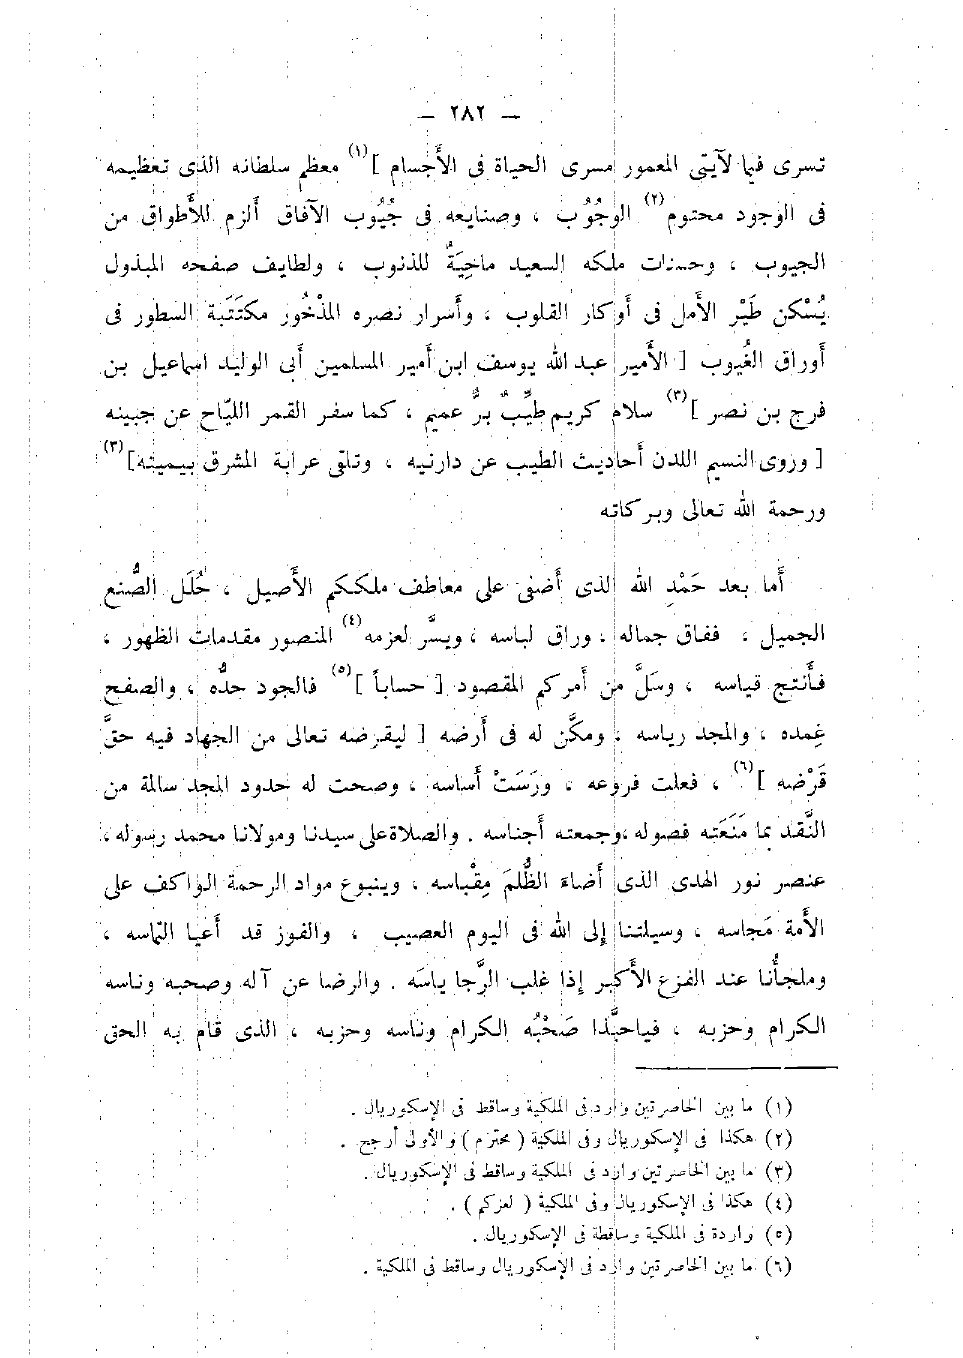 — ٢٨٢ —
تسرى فيما لآيتى المعمور مسرى الحياة فى الأجسام ] (١) معظم سلطانه الذى تعظيمه
فى الوجود محتوم (٢) الوجُوُب ، وصنايعه فى جُيُوب الآفاق ألزم للأطواق من
الجيوب ، وحسنات ملكه السعيد ماحِيَةٌ للذنوب ، ولطايف صفحه المبذول
يُسْكن طَيْر الأمل فى أوكار القلوب ، وأسرار نصره المذْخُور مكتَتَبة السطور فى
أوراق الغُيوب [ الأمير عبد الله يوسف ابن أمير المسلمين أبى الوليد اسماعيل بن
فرج بن نصر ] (٣) سلام كريم طيِّبٌ برٌّ عميم ، كما سفر القمر اللّياح عن جبينه
[ وروى النسيم اللدن أحاديث الطيب عن دارنيه ، وتلقى عرابة المشرق بيمينه] (٣)
ورحمة الله تعالى وبركاته
أما بعد حَمْدِ الله الذى أضفى على معاطف ملككم الأصيل ، حُلَل الصُّنع
الجميل ، ففاق جماله ، وراق لباسه ، ويسَّر لعزمه (٤) المنصور مقدمات الظهور ،
فأنتج قياسه ، وسَلَّ من أمركم المقصود [ حساباً ] (٥) فالجود حدُّه ، والصفح
غِمده ، والمجد رياسه ، ومكَّن له فى أرضه [ ليقرضه تعالى من الجهاد فيه حقَّ
قَرْضه ] (٦) ، فعلت فروعه ، ورَسَتْ أساسه ، وصحت له حدود المجد سالمة من
النَّقد بما مَنَعَته فصوله ، وجمعته أجناسه . والصلاة على سيدنا ومولانا محمد رسوله ،
عنصر نور الهدى الذى أضاء الظُّلمَ مِقْباسه ، وينبوع مواد الرحمة الواكف على
الأمة مَجاسه ، وسيلتنا إلى الله فى اليوم العصيب ، والفوز قد أعيا التماسه ،
وملجأُنا عند الفزع الأكبر إذا غلب الرَّجا ياسَه . والرضا عن آله وصحبه وناسه
الكرام وحزبه ، فياحبَّذا صَحْبُه الكرام وناسه وحزبه ، الذى قام به الحق
(١) ما بين الخاصرتين وارد فى الملكية وساقط فى الإسكوريال .
(٢) هكذا فى الإسكوريال وفى الملكية ( محترم ) والأولى أرجح .
(٣) ما بين الخاصرتين وارد فى الملكية وساقط فى الإسكوريال .
(٤) هكذا فى الإسكوريال وفى الملكية ( لعزكم ) .
(٥) واردة فى الملكية وساقطة فى الإسكوريال .
(٦) ما بين الخاصرتين وارد فى الإسكوريال وساقط فى الملكية .